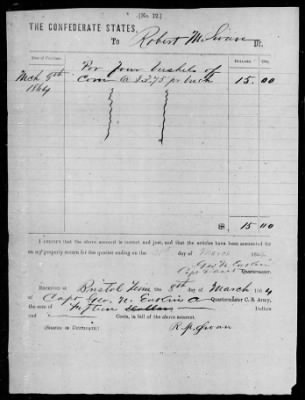 [No. 12.]
THE CONFEDERATE STATES,
To Robert M. Swan Dr.
Date of Purchase. DOLLARS Cts.
Mch 8th For four bushels of
1864 Corn @ $3.75 pr bush 15.00
15 00
I CERTIFY that the above account is correct and just, and that the articles have been accounted for
on my property return for the quarter ending on the day of March 1864
Geo. W.
Quartermaster.
RECEIVED at Bristol Tenn the 8th day of March 1864
of Capt Geo. W. Quartermaster C. S. Army,
the sum of fifteen Dollars
and Cents, in full of the above account.
(SIGNED IN DUPLICATE.) R. M. Swan